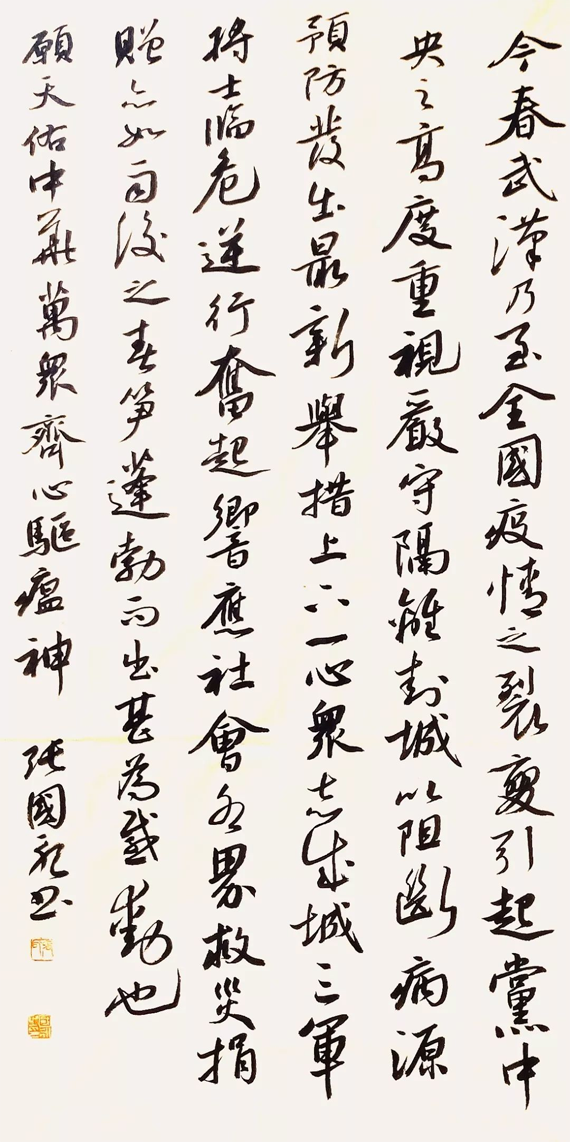 今春武漢乃至全國疫情之裂變引起黨中
央之高度重視嚴守隔離封城以阻斷病源
預防發生最新舉措上下一心眾志成城三軍
將士臨危逆行奮起響應社會各界救災捐
贈亦如雨後之春筍蓬勃而出甚為感動也
願天佑中華萬眾齊心驅瘟神 張國彪書